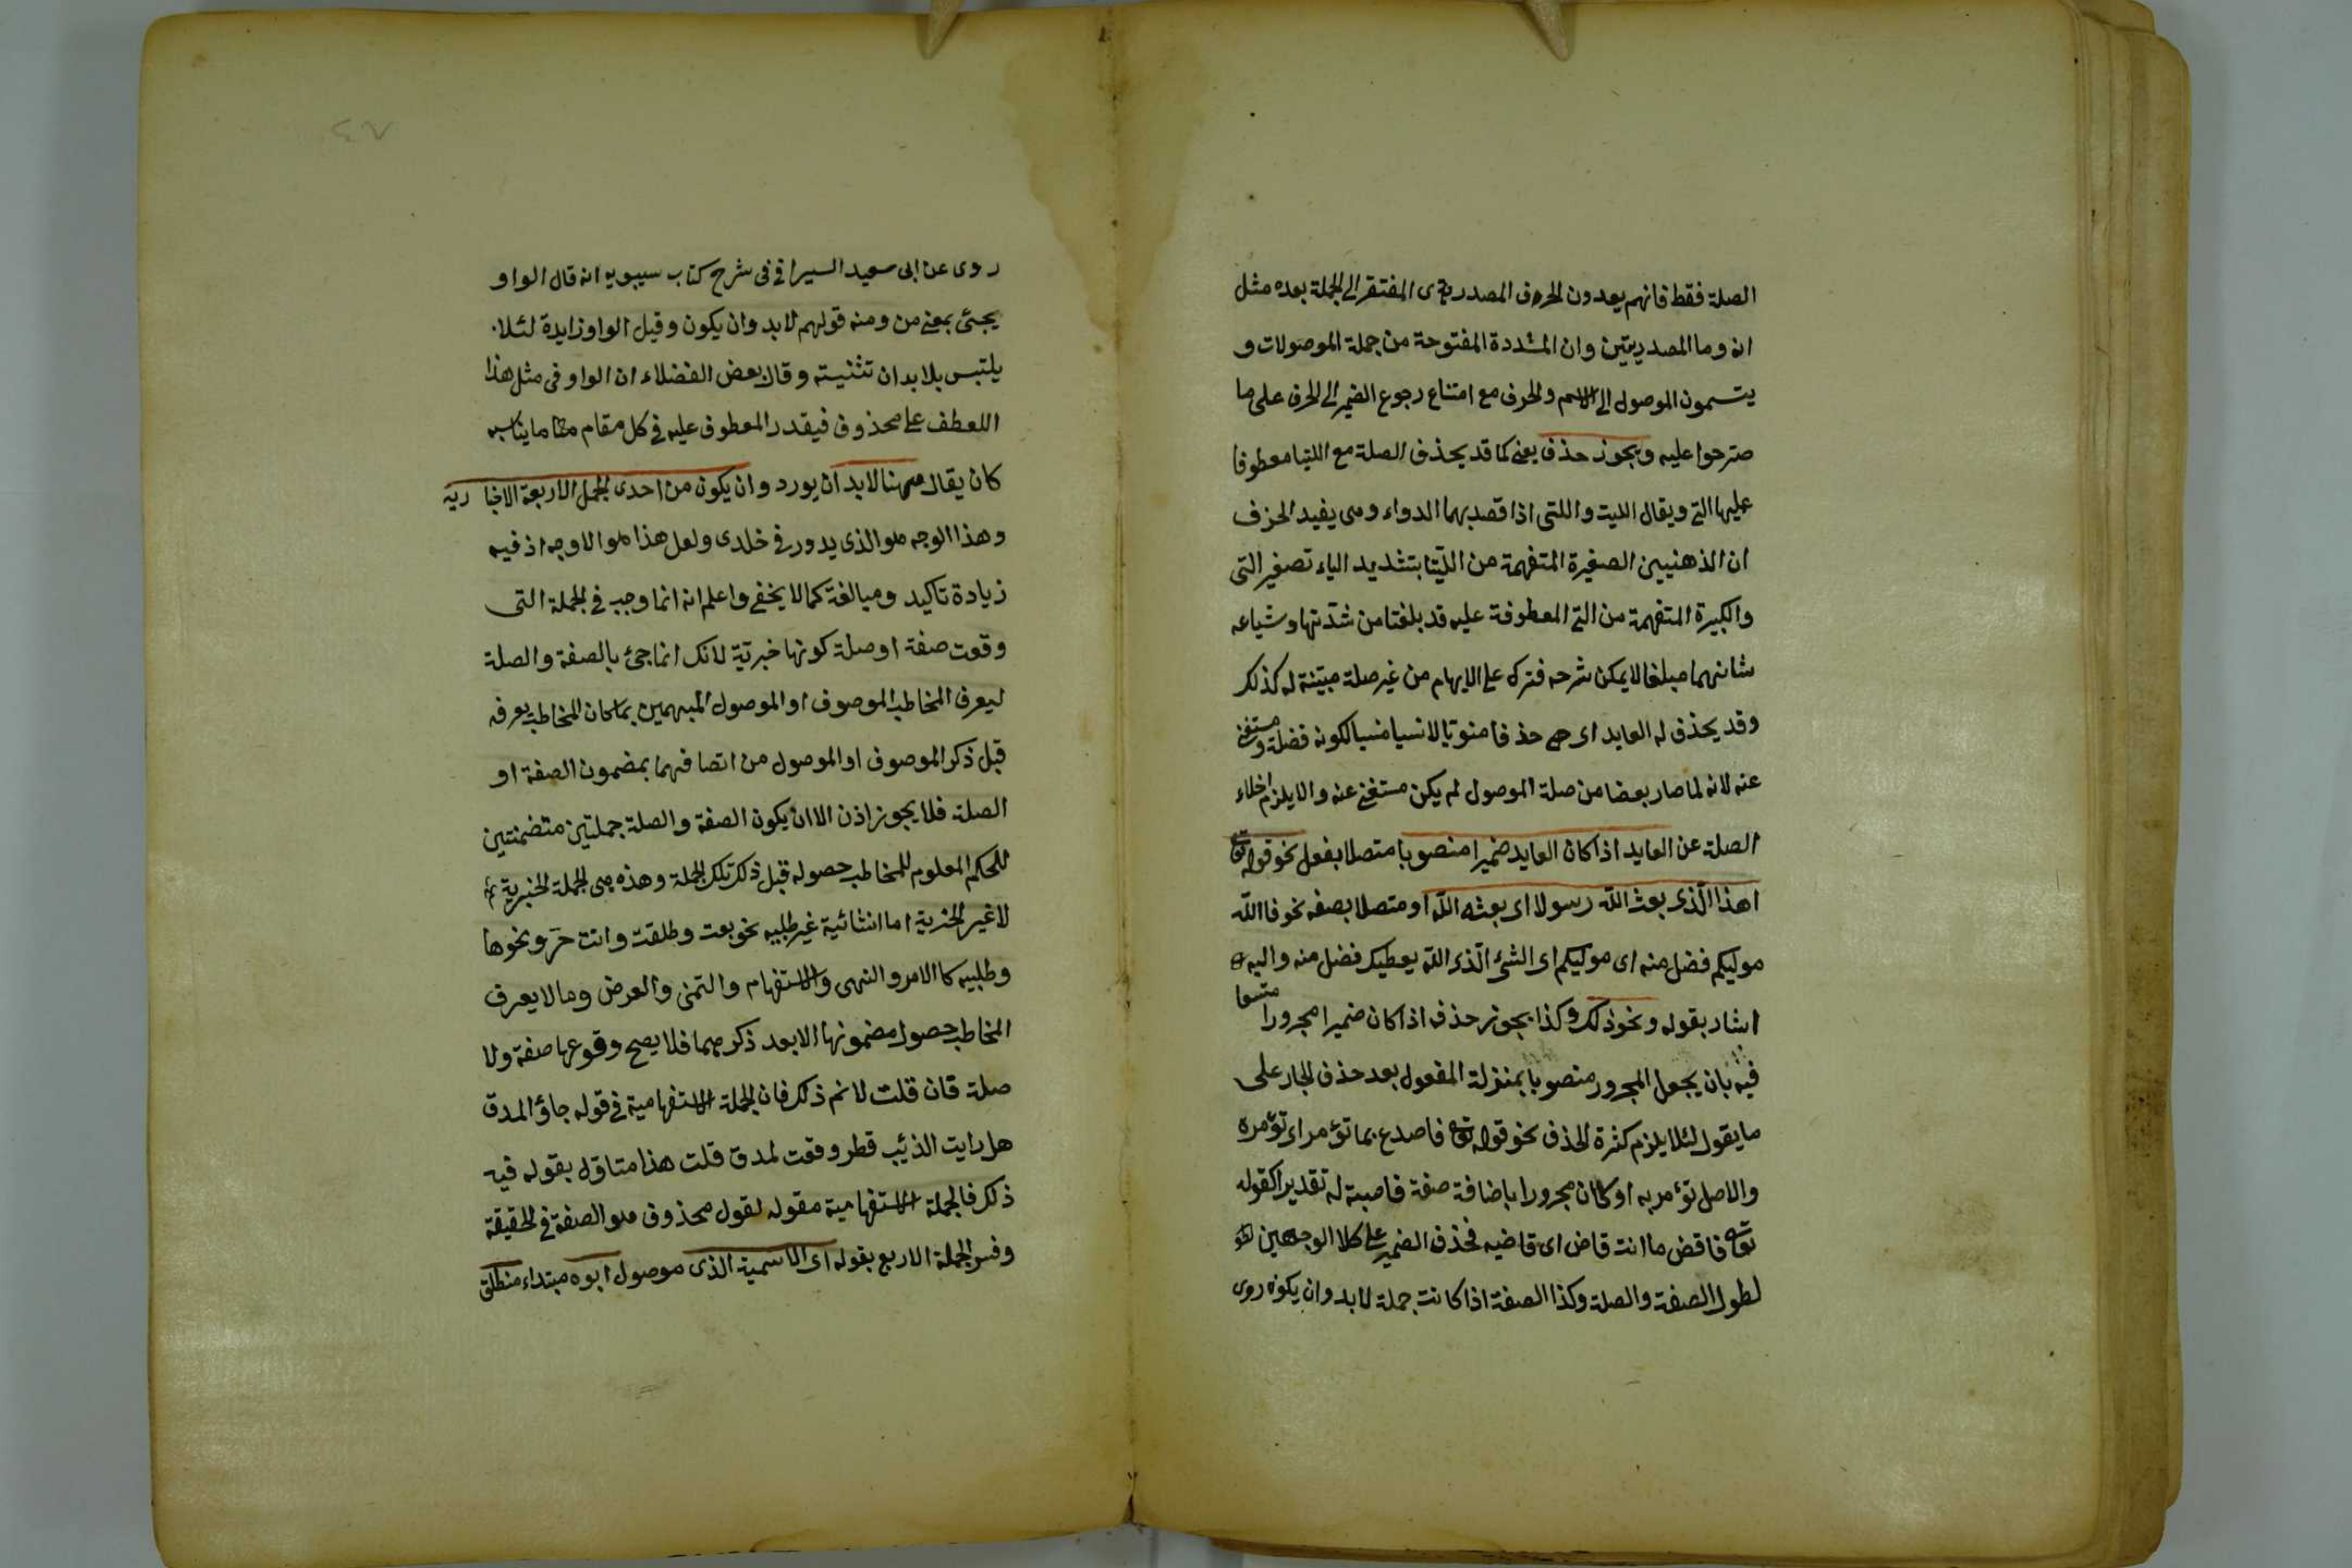 الصلة فقط فانهم يعدون الحروف المصدرية المفتقر الى الجملة بعده مثل
ان وما المصدريتين وان المشددة المفتوحة من جملة الموصولات و
يتسمون الموصول الى الاسم والحرف مع امتناع رجوع الضمير الى الحرف على ما
صرحوا عليه ويجوز حذف يعنى كما قد يحذف الصلة مع اللتيا معطوفا
عليها التى ويقال الليت واللتى اذا قصد بهما الدواء ومى يفيد الحزف
ان الذهنيين الصغيرة المتفهمة من اللتيا بتشديد الياء تصغير التى
والكبيرة المتفهمة من التى المعطوفة عليه قد بلغتا من شدتها وشياعه
شانهما مبلغا لا يمكن شرحه فترك على الابهام من غير صلة مبينة له كذلك
وقد يحذف له العايد اى حذفا منويا لا نسيا منسيا لكونه فضلة ومستغنى
عنه لانه لما صار بعضا من صلة الموصول لم يكن مستغنى عنه والا يلزم اخلاء
الصلة عن العايد اذا كان العايد ضميرا منصوبا متصلا بفعل نحو قوله تع
اهذا الذى بعث الله رسولا اى بعثه الله او متصلا بصفه نحو فا الله
موليكم فضل منه اى موليكم اى الشئ الذى الله يعطيك فضل منه واليه
اشار بقوله ونحو ذلك وكذا يجوز حذف اذا كان ضميرا مجرورا متسعا
فيه بان يجعل المجرور منصوبا بمنزلة المفعول بعد حذف الجار على
ما يقول لئلا يلزم كثرة الحذف نحو قوله تع فاصدع بما تؤمر اى تؤمره
والاصل تؤمر به او كان مجرورا باضافة صفة فاصبة له تقديرا كقوله
تع فاقض ما انت قاض اى قاضيه فحذف الضمير على كلا الوجهين
لطول الصفة والصلة وكذا الصفة اذا كانت جملة لابد وان يكون روى
روى عن ابى سعيد السيرافى فى شرح كتاب سيبويه انه قال الواو
يجئ بمعنى من ومنه قولهم لابد وان يكون وقيل الواو زايدة لئلا
يلتبس بلا بدان تثنيته وقال بعض الفضلاء ان الواو فى مثل هذا
اللعطف على محذوف فيقدر المعطوف عليه فى كل مقام ما يناسبه
كان يقال ههنا لابد ان يورد وان يكون من احدى الجمل الاربعة الاخبارية
وهذا الوجه هو الذى يدور فى خلدى ولعل هذا هو الاوجه اذ فيه
زيادة تاكيد ومبالغة كما لا يخفى واعلم انه انما وجب فى الجملة التى
وقوت صفة او صلة كونها خبرية لانك انما جئ بالصفة والصلة
ليعرف المخاطب الموصوف او الموصول المبهمين بما كان المخاطب يعرفه
قبل ذكر الموصوف او الموصول من اتصافهما بمضمون الصفة او
الصلة فلا يجوز اذن الا ان يكون الصفة والصلة جملتين متضمنتين
للحكم المعلوم للمخاطب حصوله قبل ذكر تلك الجملة وهذه هى الجملة الخبرية
لا غير الخبرية اما انشائية غير طلبيه نحو بعت وطلقت وانت حر ونحوها
وطلبيه كا الامر والنهى والاستفهام والتمنى والعرض وما لا يعرف
المخاطب حصول مضمونها الا بعد ذكرهما فلا يصح وقوعها صفة ولا
صلة فان قلت لا نم ذلك فان الجملة الاستفهامية فى قوله جاؤ المدق
هل رايت الذئب قط وقعت لمدق قلت هذا متاول بقوله فيه
ذلك فالجملة الاستفهامية مقوله لقول محذوف هو الصفة فى الحقيقة
وفسر الجملة الاربع بقوله اى الاسمية الذى موصول ابوه مبتداء منطلق